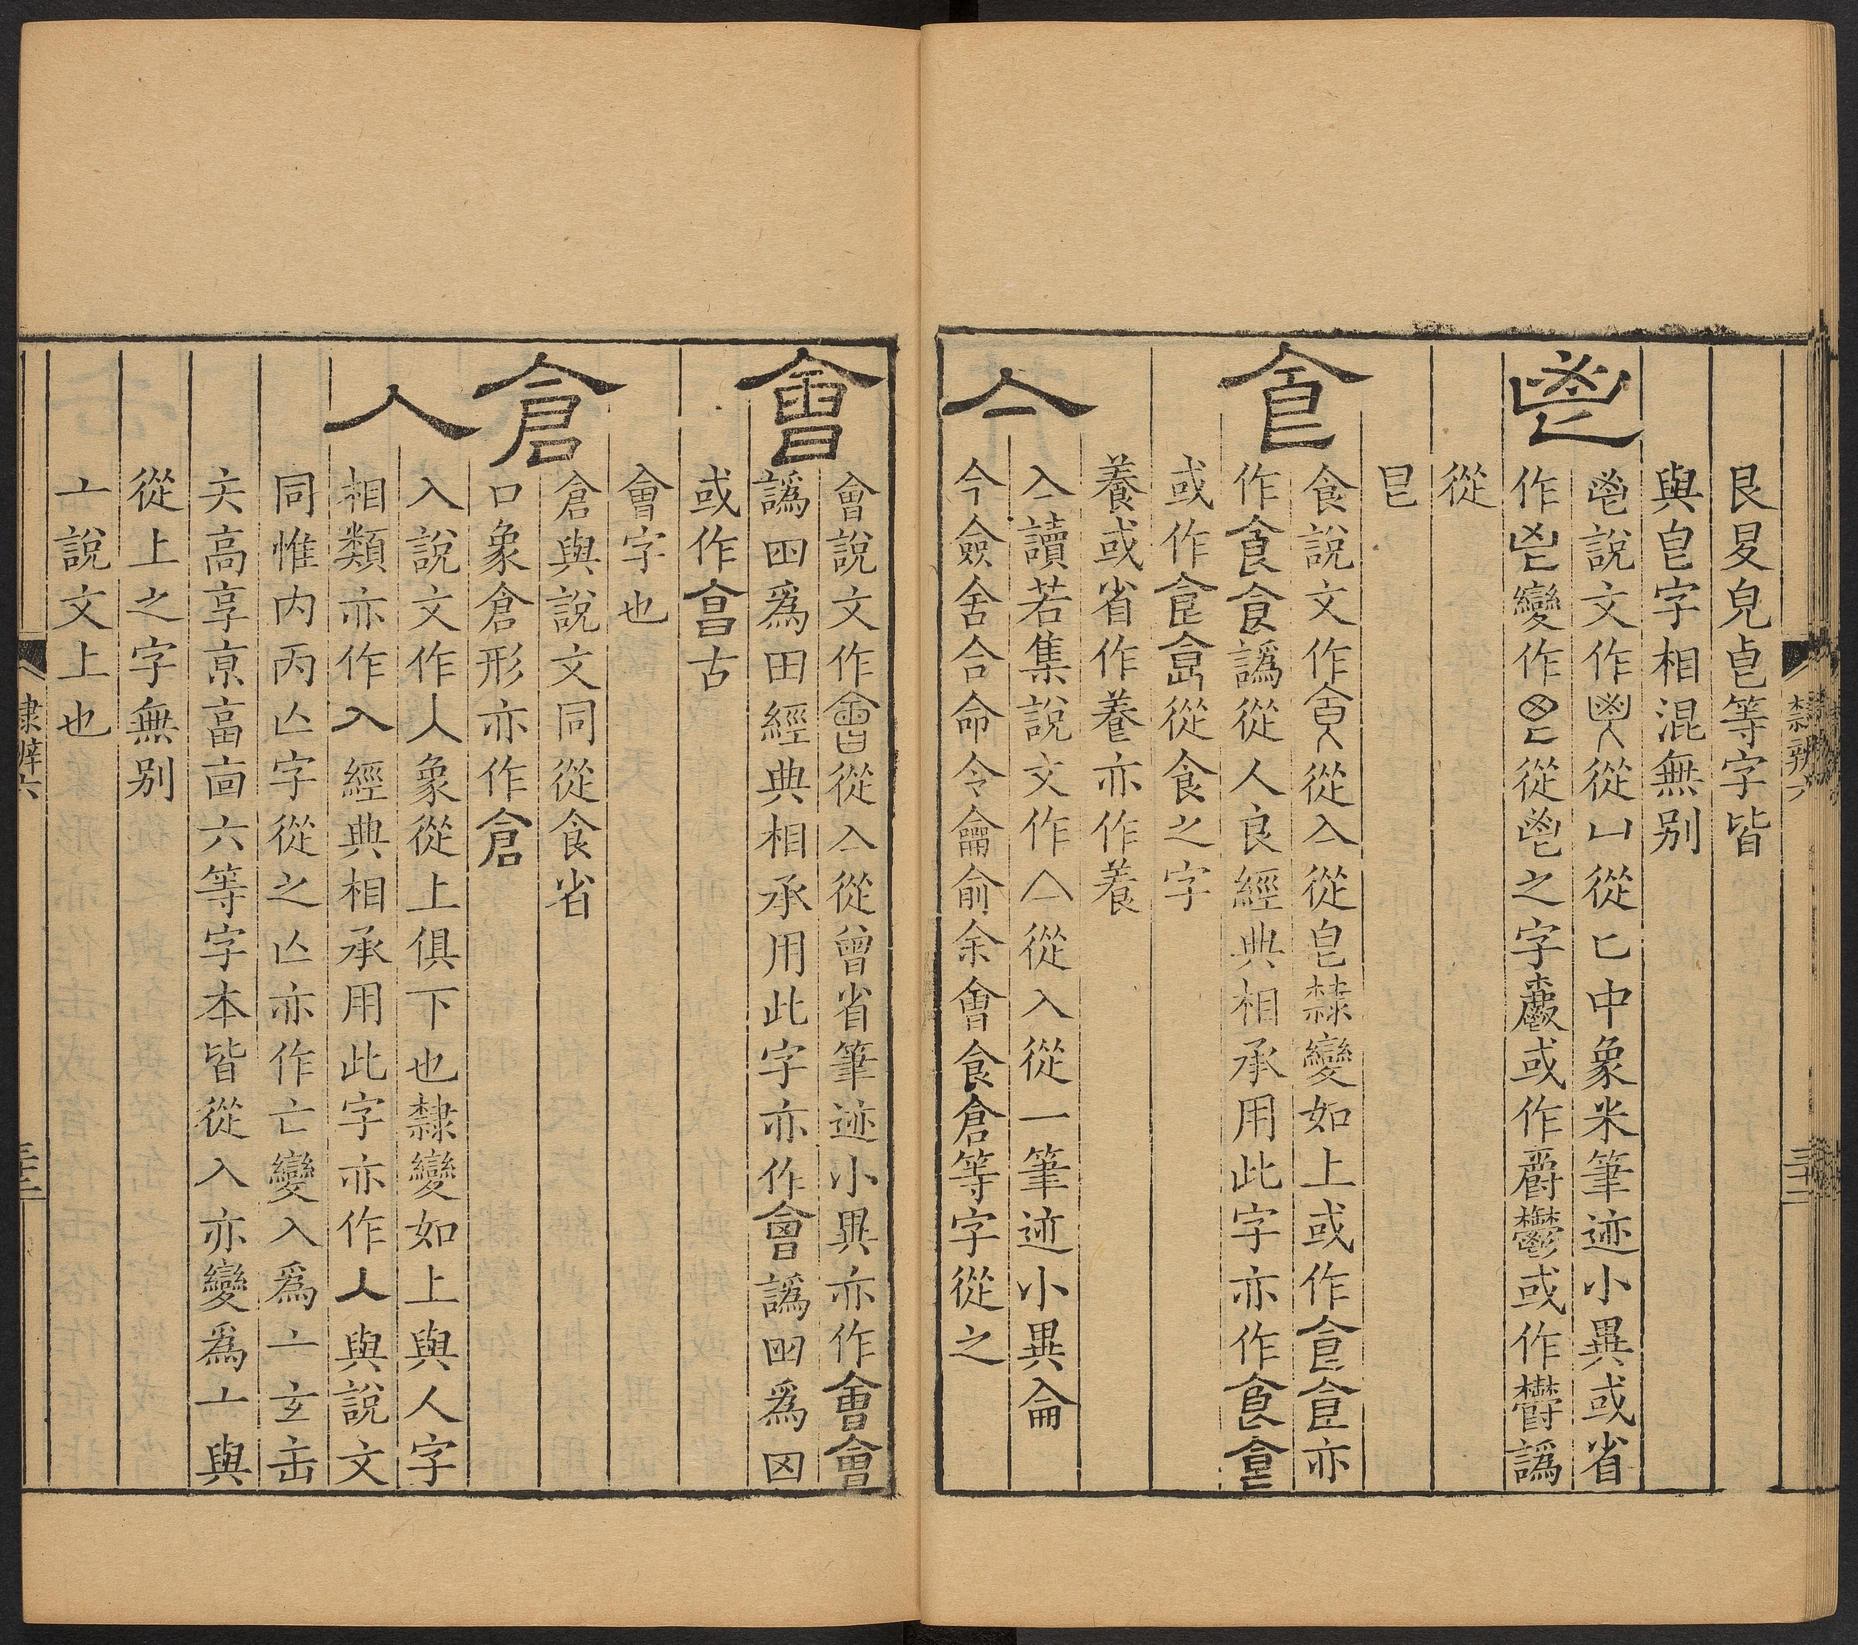 艮㫐皃卓等字皆
與皀字相混無別
鬯
鬯說文作鬯從凵從匕中象米筆迹小異或省
作鬯變作從鬯之字䖇或作爵鬱或作欝譌
從
皀
食
食說文作食從亼從皀隸變如上或作食食亦
作食食譌從人良經典相承用此字亦作食食
或作食從食之字
養或省作養亦作養
亼
亼讀若集說文作亼從入從一筆迹小異侖
今僉舍合命令龠俞余會食倉等字從之
會
會說文作會從亼從曾省筆迹小異亦作會會
譌囧爲田經典相承用此字亦作會譌囧爲囟
或作㑹古
會字也
倉
倉與說文同從食省
口象倉形亦作倉
入
入說文作入象從上俱下也隸變如上與人字
相類亦作入經典相承用此字亦作人與說文
同惟内丙亾字從之亾亦作亡變入爲亠㐫缶
矢高享京畐靣六等字本皆從入亦變爲亠與
從上之字無別
亠說文上也
隸辨六
三十二